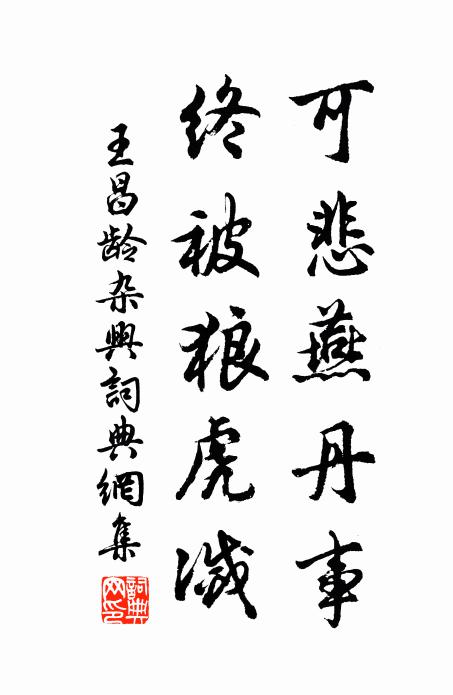 可悲燕丹事
终被狼虎滅
王昌龄杂興詞典網集
詞典网印